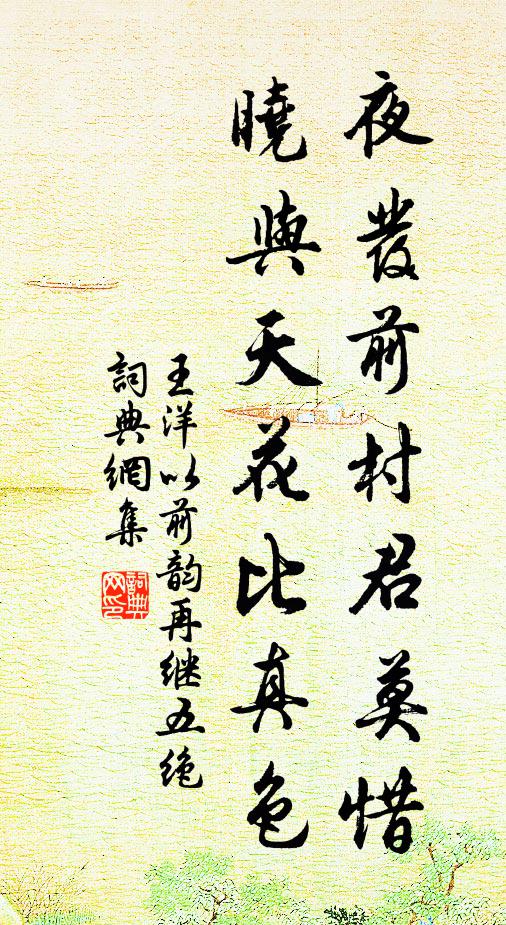 夜發前村君莫惜
曉與天花比真色
王洋以前韵再继五绝
詞典網集
詞典网印